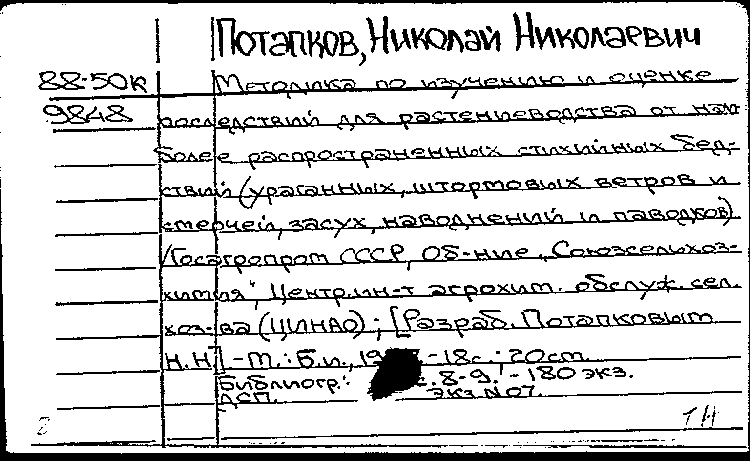 Потапков, Николай Николаевич
88-50к Методика по изучению и оценке
9848 последствий для растениеводства от наи-
более распространенных стихийных бед-
ствий (ураганных, штормовых ветров и
смерчей, засух, наводнений и паводков)
/Госагропром СССР, Об-ние "Союзсельхоз-
химия", Центр. ин-т агрохим. обслуж. сел.
хоз-ва (ЦИНАО); [Разраб. Потапковым
Н.Н.] - М.: Б.и., 19 - 18с.; 20см.
Библиогр.: с. 8-9. - 180 экз.
ДСП. экз N 07.
2 ТН